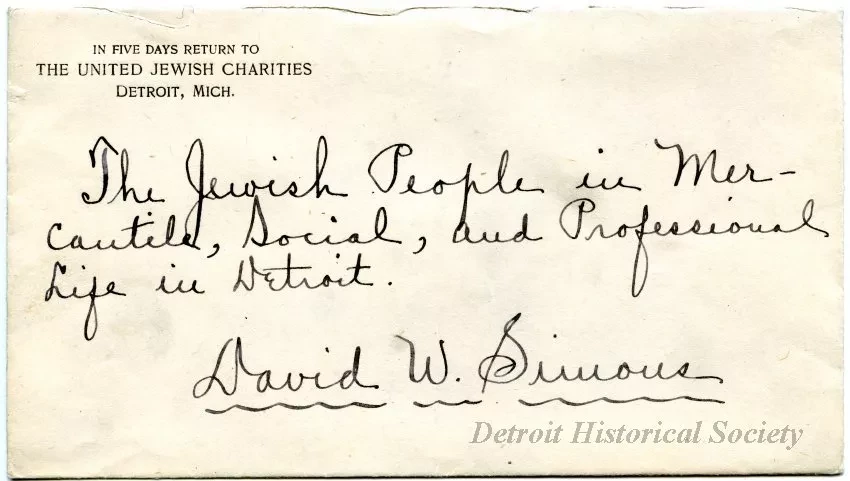 IN FIVE DAYS RETURN TO
THE UNITED JEWISH CHARITIES
DETROIT, MICH.
The Jewish People in Mer-
cantile, Social, and Professional
Life in Detroit.
David W. Simons
Detroit Historical Society